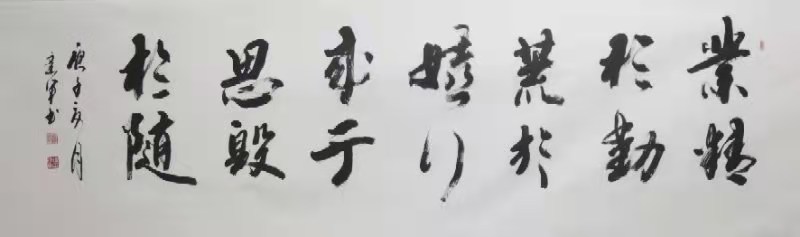 業精
於勤
荒於
嬉行
成于
思毀
於随
庚子亥月
書